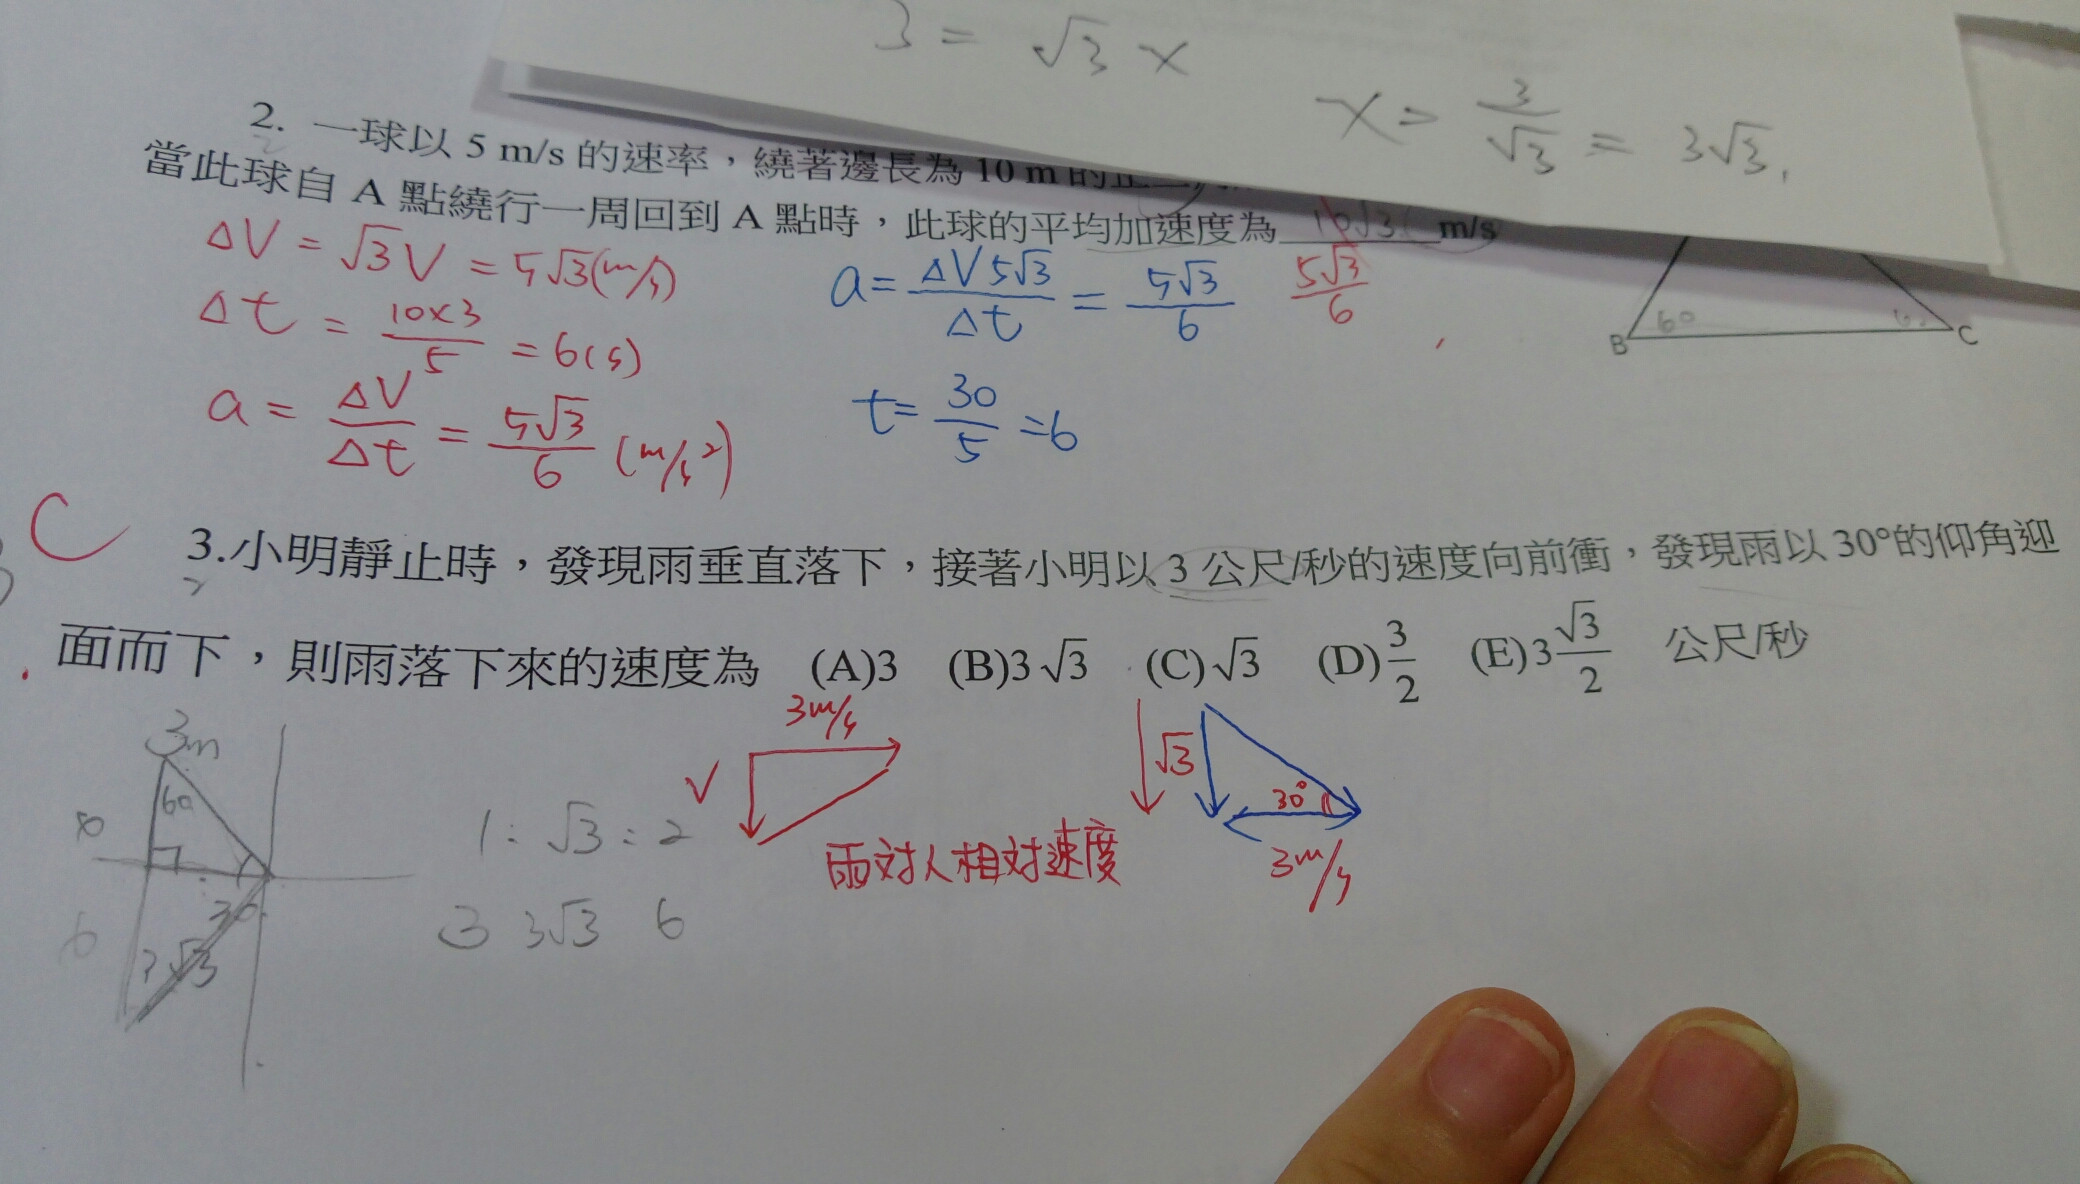 3 = √3 x
x = 3/√3 = 3√3.
2. 一球以 5 m/s 的速率，繞著邊長為 10 m 的正
當此球自 A 點繞行一周回到 A 點時，此球的平均加速度為 10√3 m/s
ΔV = √3 V = 5√3 (m/s)
Δt = 10×3/5 = 6(s)
a = ΔV/Δt = 5√3/6 (m/s²)
a = ΔV 5√3/Δt = 5√3/6
5√3/6
t = 30/5 = 6
B 60 C
C
3.小明靜止時，發現雨垂直落下，接著小明以 3 公尺/秒的速度向前衝，發現雨以 30°的仰角迎
面而下，則雨落下來的速度為 (A)3 (B)3√3 (C)√3 (D)3/2 (E)3√3/2 公尺/秒
3m
60
30
3√3
1 : √3 : 2
3 3√3 6
3m/s
V
雨対人相対速度
√3
30°
3m/s